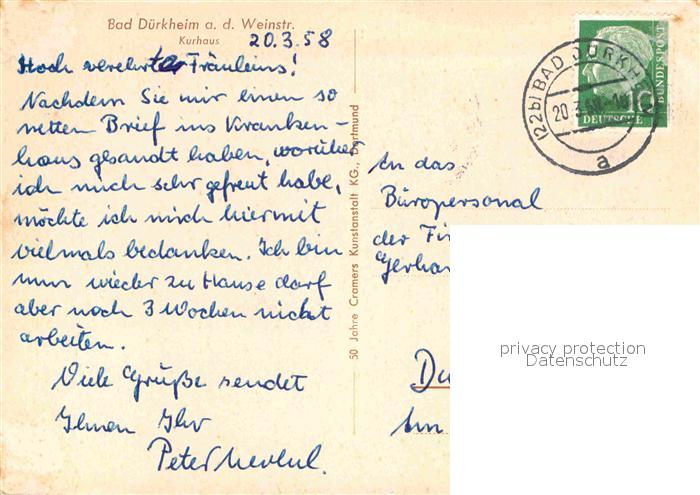 Bad Dürkheim a. d. Weinstr.
Kurhaus
20.3.58
Hoch verehrte Fräuleins!
Nachdem Sie mir einen so
netten Brief ins Kranken-
haus gesandt haben, worüber
ich mich sehr gefreut habe,
möchte ich mich hiermit
vielmals bedanken. Ich bin
nun wieder zu Hause darf
aber noch 3 Wochen nicht
arbeiten.
Viele Grüße sendet
Ihnen Ihr
Peter
50 Jahre Cramers Kunstanstalt KG., Dortmund
(22b) BAD DÜRKHE
20.3.58
a
DEUTSCHE
BUNDESPOST
10
An das
Büropersonal
der Fi
Gerha
Du
Am
privacy protection
Datenschutz